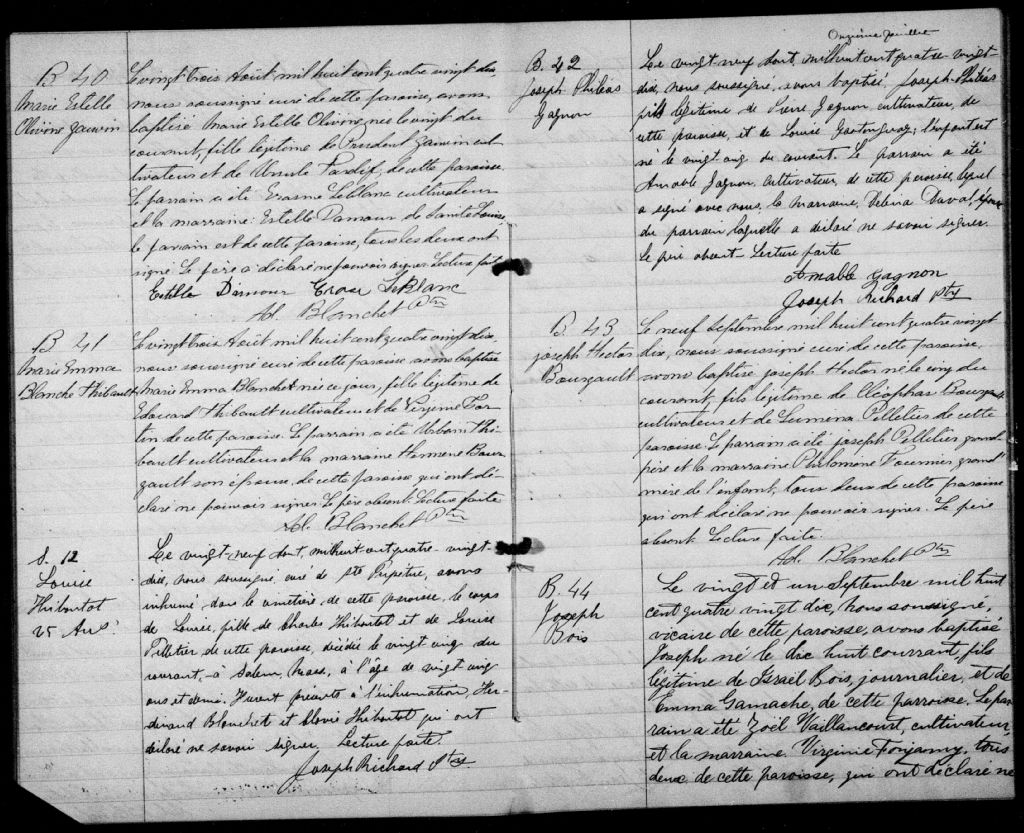 B 40
Marie Estelle
Olivine Gauvin
Le vingt trois Août mil huit cent quatre vingt dix,
nous soussigné curé de cette paroisse, avons
baptisé Marie Estelle Olivine, née le vingt du
courant, fille légitime de Prudent Gauvin cul-
tivateur et de Ursule Pardif, de cette paroisse.
Le parrain a été Erasme LeBlanc cultivateur
et la marraine Estelle Damour de Sainte Louise,
le parrain est de cette paroisse, tous les deux ont
signé. Le père a déclaré ne pouvoir signer. Lecture faite
Estelle Damour Erase LeBlanc
Ad. Blanchet Ptre
B 41
Marie Emma
Blanche Thibault
Le vingt trois Août mil huit cent quatre vingt dix,
nous soussigné curé de cette paroisse avons baptisé
Marie Emma Blanche née ce jour, fille légitime de
Edouard Thibault cultivateur et de Virginie For-
tin de cette paroisse. Le parrain a été Urbain Thi-
bault cultivateur et la marraine Hermine Bour-
gault son épouse, de cette paroisse qui ont dé-
claré ne pouvoir signer. Le père absent. Lecture faite
Ad. Blanchet Ptre
S. 12
Louise
Thibortot
25 Ans
Le vingt-neuf août, mil huit cent quatre-vingt-
dix, nous soussigné, curé de Ste Perpétue, avons
inhumé dans le cimetière de cette paroisse, le corps
de Louise, fille de Charles Thibortot et de Louise
Pelletier de cette paroisse, décédée le vingt cinq du
courant, à Salem, Mass, à l'âge de vingt cinq
ans et demi. Furent présents à l'inhumation, Fer-
dinand Blanchet et Clovis Thibortot qui ont
déclaré ne savoir signer. Lecture faite.
Joseph Richard Ptre
B. 42
Joseph Philéas
Gagnon
Onzième feuillet
Le vingt neuf août, mil huit cent quatre-vingt-
dix, nous soussigné, avons baptisé, Joseph-Philéas
fils légitime de Pierre Gagnon, cultivateur, de
cette paroisse, et de Louise Gastonguay; l'enfant est
né le vingt cinq du courant. Le parrain a été
Amable Gagnon cultivateur, de cette paroisse, lequel
a signé avec nous, la marraine, Délina Duval, épouse
du parrain laquelle a déclaré ne savoir signer.
le père absent. Lecture faite
Amable Gagnon
Joseph Richard Ptre
B. 43
Joseph Hector
Bourgault
Le neuf Septembre mil huit cent quatre vingt
dix, nous soussigné curé de cette paroisse,
avons baptisé Joseph Hector né le cinq du
courant, fils légitime de Cléophas Bourgault
cultivateur et de Lumina Pelletier de cette
paroisse. Le parrain a été Joseph Pelletier grand-
père et la marraine Philomène Fournier grand'
mère de l'enfant, tous deux de cette paroisse
qui ont déclaré ne pouvoir signer. Le père
absent. Lecture faite.
Ad. Blanchet Ptre
B. 44
Joseph
Bois
Le vingt et un Septembre mil huit
cent quatre vingt dix, nous soussigné,
vicaire de cette paroisse, avons baptisé
Joseph né le dix huit courrant, fils
légitime de Israël Bois, journalier, et de
Emma Gamache, de cette parroisse. Le par-
rain a été Zoël Vaillancourt, cultivateur,
et la marraine Virginie Fonjamy, tous
deux de cette paroisse, qui ont déclaré ne